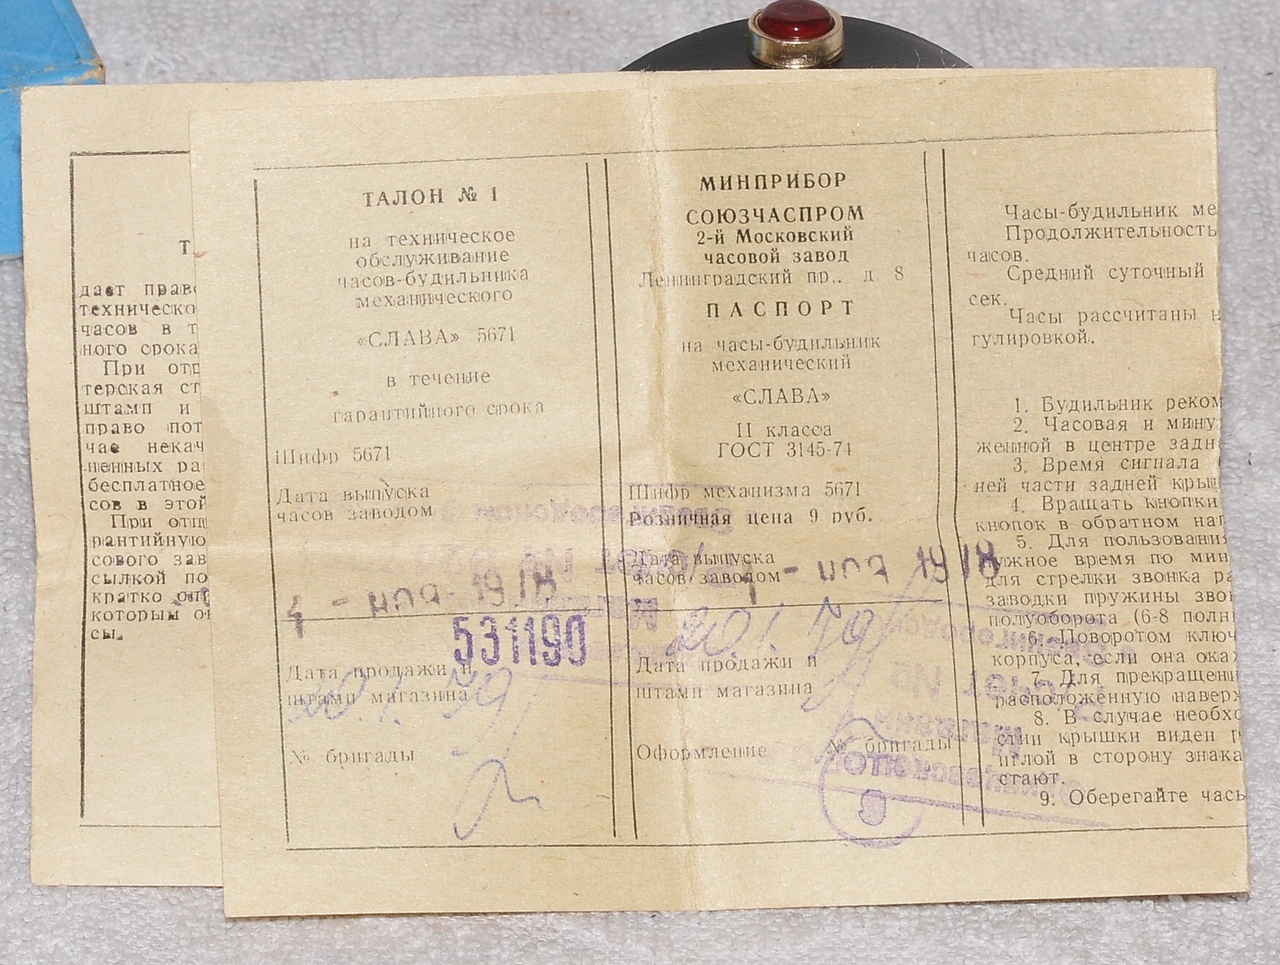 дает право
техническо
часов в т
ного срока
При отп
терская ст
штамп и
право пот
чае некач
ненных ра
бесплатное
сов в этой
При отп
рантийную
сового зав
сылкой по
кратко оп
которым о
сы.
ТАЛОН № 1
на техническое
обслуживание
часов-будильника
механического
«СЛАВА» 5671
в течение
гарантийного срока
Шифр 5671
Дата выпуска
часов заводом
531190
Дата продажи и
штамп магазина
20.1.79
№ бригады
МИНПРИБОР
СОЮЗЧАСПРОМ
2-й Московский
часовой завод
Ленинградский пр., д. 8
ПАСПОРТ
на часы-будильник
механический
«СЛАВА»
II класса
ГОСТ 3145-74
Шифр механизма 5671
Розничная цена 9 руб.
Дата выпуска
часов заводом
20.1.79
Дата продажи и
штамп магазина
Оформление № бригады
Часы-будильник ме
Продолжительность
часов.
Средний суточный
сек.
Часы рассчитаны н
гулировкой.
1. Будильник реком
2. Часовая и мину
женной в центре задн
3. Время сигнала
ней части задней крыш
4. Вращать кнопки
кнопок в обратном нап
5. Для пользовани
нужное время по мин
для стрелки звонка ра
заводки пружины зво
полуоборота (6-8 полн
6. Поворотом ключ
корпуса, если она ока
7. Для прекращени
расположенную наверх
8. В случае необхо
стии крышки виден
иглой в сторону знака
стают.
9. Оберегайте час